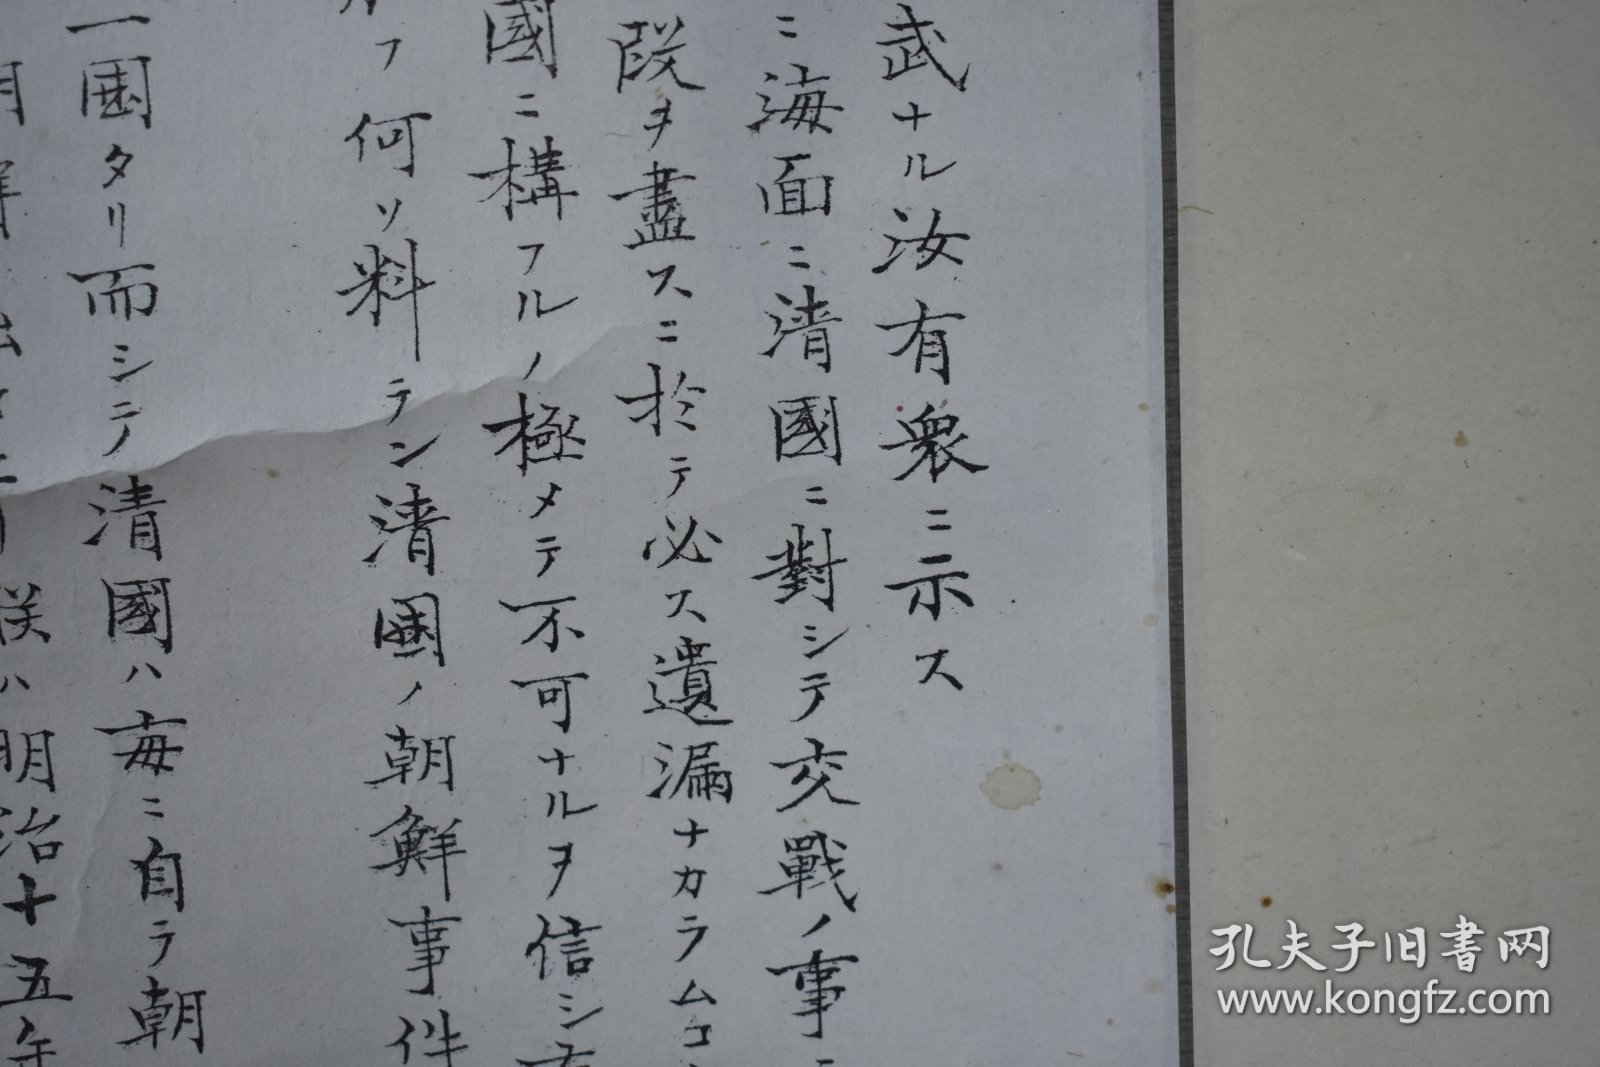 武ナル汝有衆ニ示ス
ニ海面ニ清國ニ對シテ交戰ノ事ニ
段ヲ盡スニ於テ必ス遺漏ナカラムコ
國ニ構フルノ極メテ不可ナルヲ信シ
フ何ソ料ラン清國ノ朝鮮事件
一國タリ而シテ清國ハ毎ニ自ラ朝
朕ハ明治十五年
孔夫子旧書网
www.kongfz.com